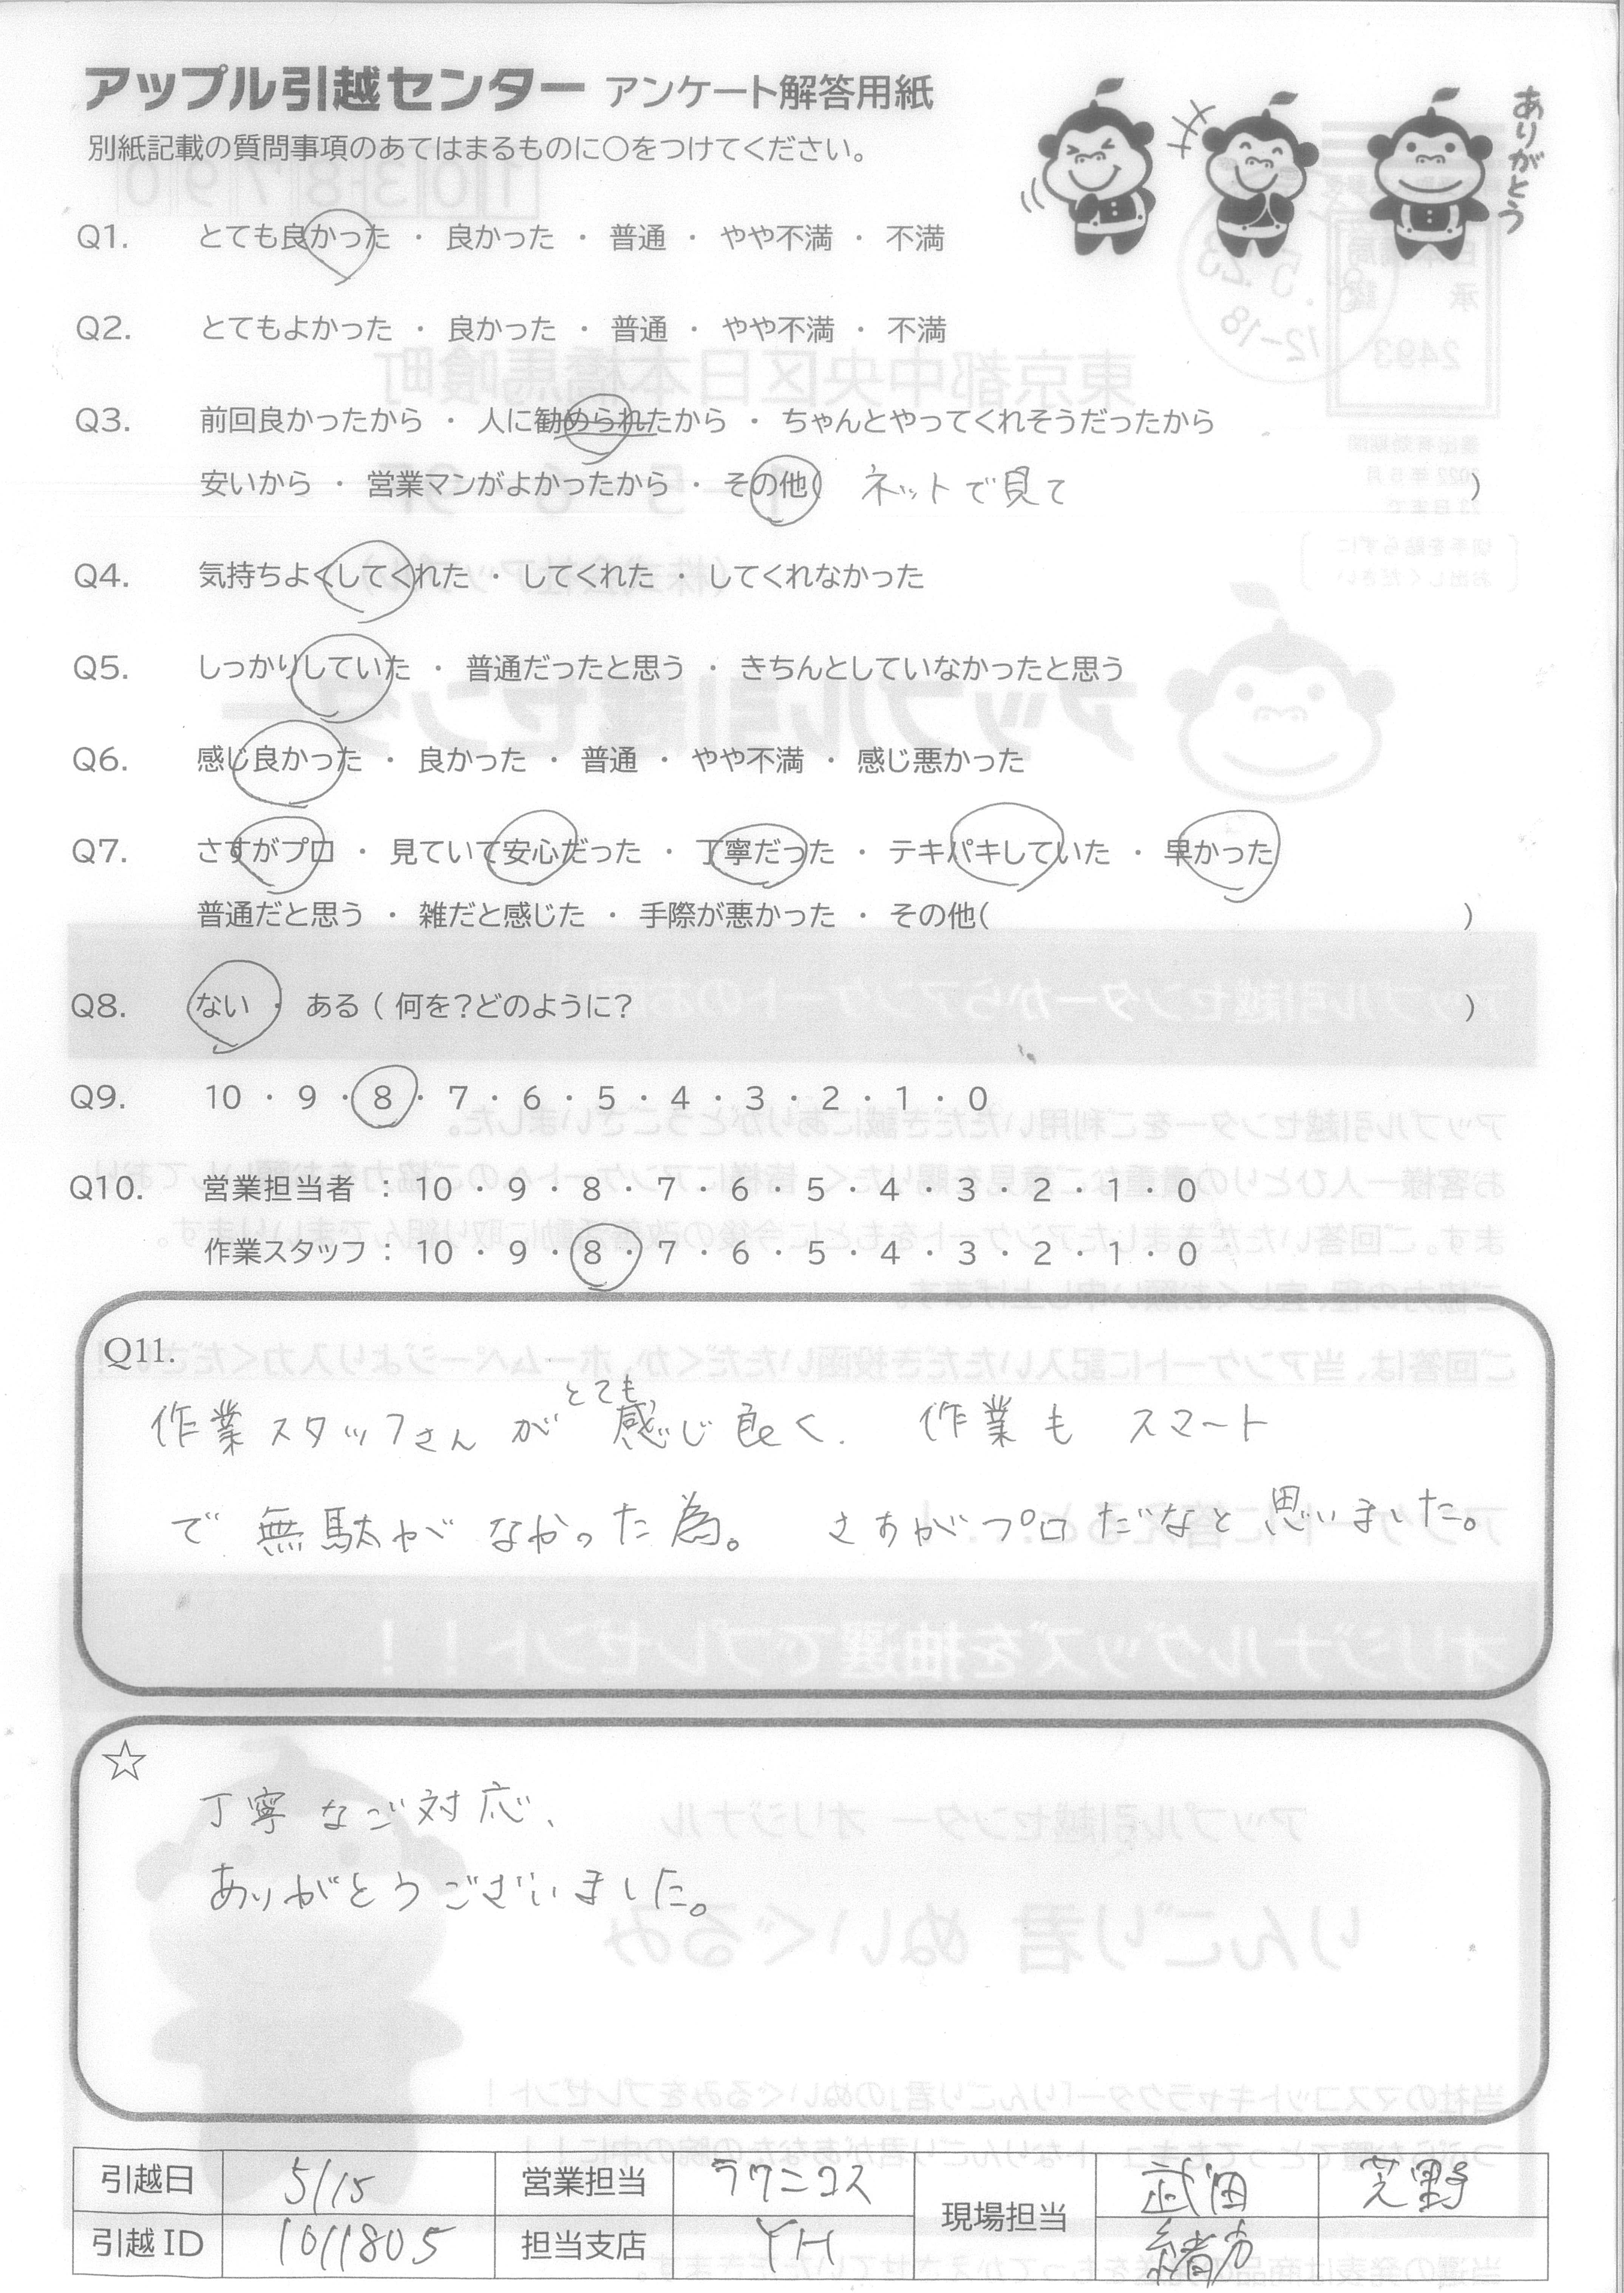 アップル引越センター アンケート解答用紙
ありがとう
別紙記載の質問事項のあてはまるものに○をつけてください。
Q1. とても良かった ・ 良かった ・ 普通 ・ やや不満 ・ 不満
Q2. とてもよかった ・ 良かった ・ 普通 ・ やや不満 ・ 不満
Q3. 前回良かったから ・ 人に勧められたから ・ ちゃんとやってくれそうだったから
安いから ・ 営業マンがよかったから ・ その他( ネットで見て )
Q4. 気持ちよくしてくれた ・ してくれた ・ してくれなかった
Q5. しっかりしていた ・ 普通だったと思う ・ きちんとしていなかったと思う
Q6. 感じ良かった ・ 良かった ・ 普通 ・ やや不満 ・ 感じ悪かった
Q7. さすがプロ ・ 見ていて安心だった ・ 丁寧だった ・ テキパキしていた ・ 早かった
普通だと思う ・ 雑だと感じた ・ 手際が悪かった ・ その他( )
Q8. ない ・ ある ( 何を?どのように? )
Q9. 10 ・ 9 ・ 8 ・ 7 ・ 6 ・ 5 ・ 4 ・ 3 ・ 2 ・ 1 ・ 0
Q10. 営業担当者 : 10 ・ 9 ・ 8 ・ 7 ・ 6 ・ 5 ・ 4 ・ 3 ・ 2 ・ 1 ・ 0
作業スタッフ : 10 ・ 9 ・ 8 ・ 7 ・ 6 ・ 5 ・ 4 ・ 3 ・ 2 ・ 1 ・ 0
Q11.
作業スタッフさんがとても感じ良く、作業もスマート
で無駄がなかった為。さすがプロだなと思いました。
☆
丁寧なご対応、
ありがとうございました。
引越日 5/15 営業担当 ラクニコス 現場担当 武田 芝野
引越ID 1011805 担当支店 YH 緒方